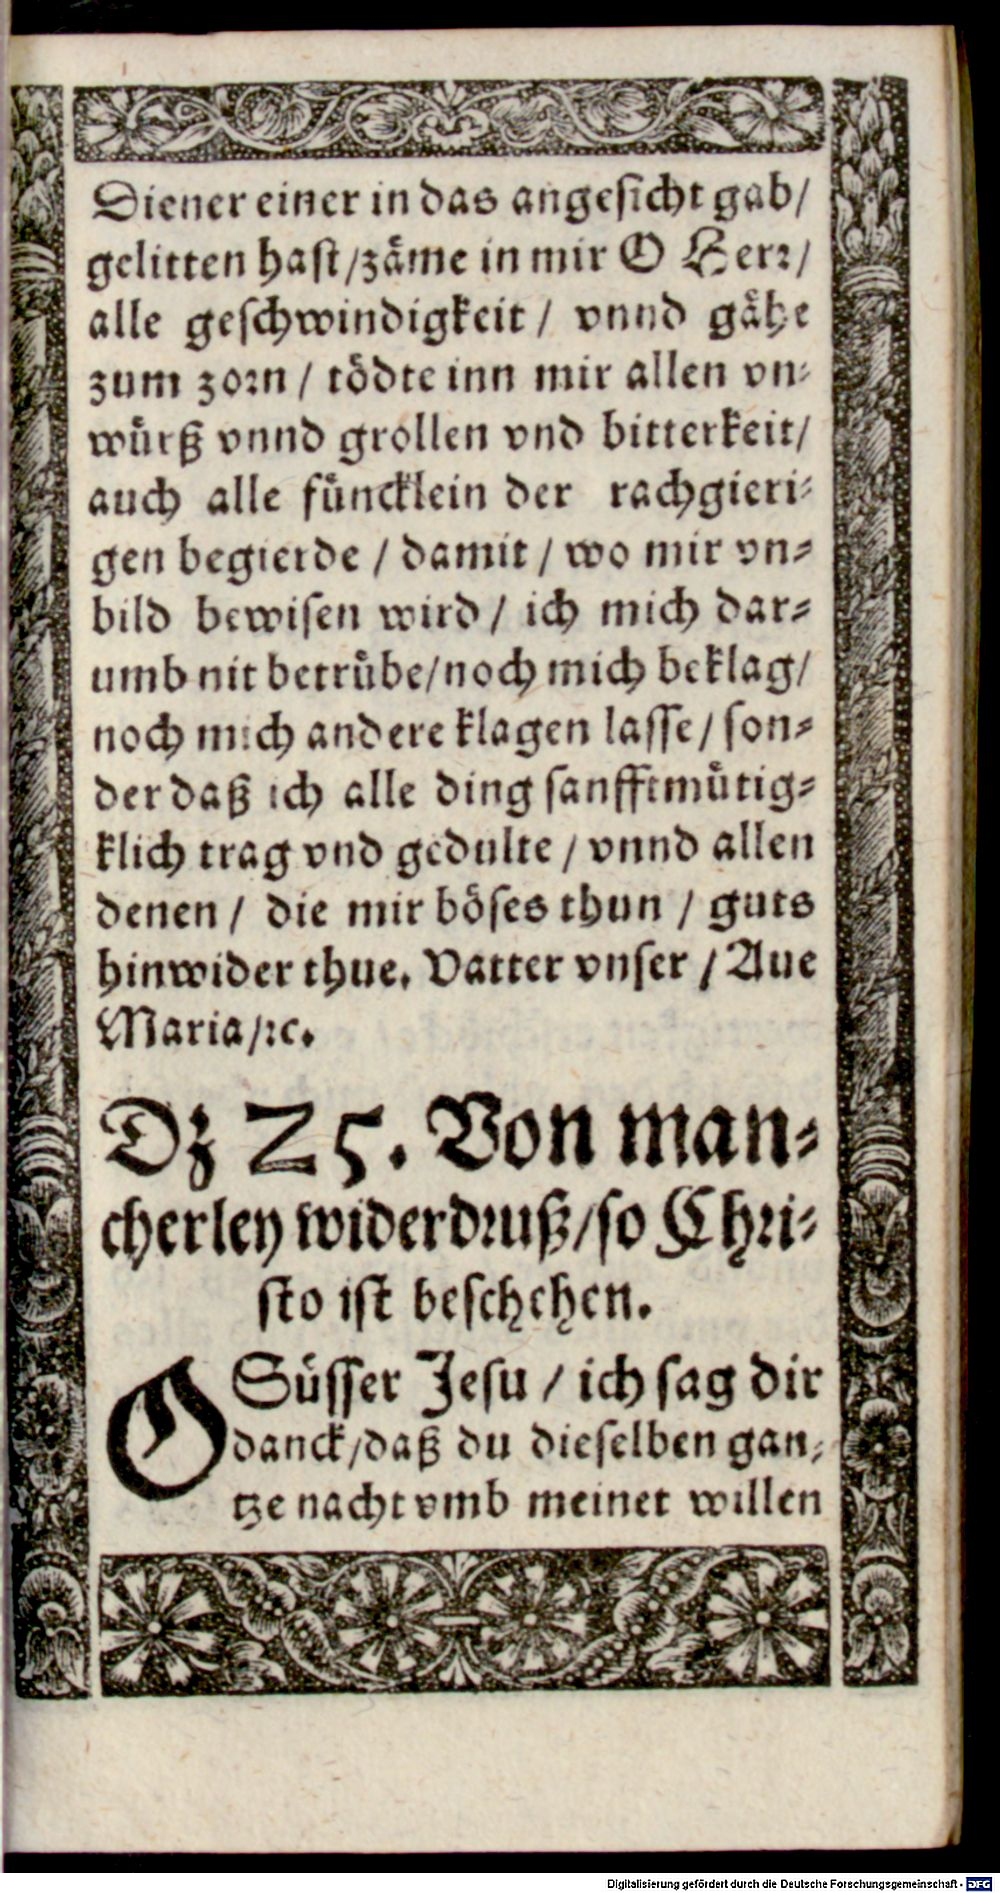 Diener einer in das angesicht gab/
gelitten hast/zäme in mir O Herr/
alle geschwindigkeit / vnnd gähe
zum zorn / tödte inn mir allen vn-
würß vnnd grollen vnd bitterkeit/
auch alle füncklein der rachgieri-
gen begierde / damit / wo mir vn-
bild bewisen wird / ich mich dar-
umb nit betrübe/noch mich beklag/
noch mich andere klagen lasse / son-
der daß ich alle ding sanfftmütig-
klich trag vnd gedulte / vnnd allen
denen / die mir böses thun / guts
hinwider thue. Vatter vnser / Aue
Maria/ꝛc.
Dz 25. Von man-
cherley widerdruß/so Chri-
sto ist beschehen.
O Süsser Jesu / ich sag dir
danck/daß du dieselben gan-
tze nacht vmb meinet willen
Digitalisierung gefördert durch die Deutsche Forschungsgemeinschaft - DFG